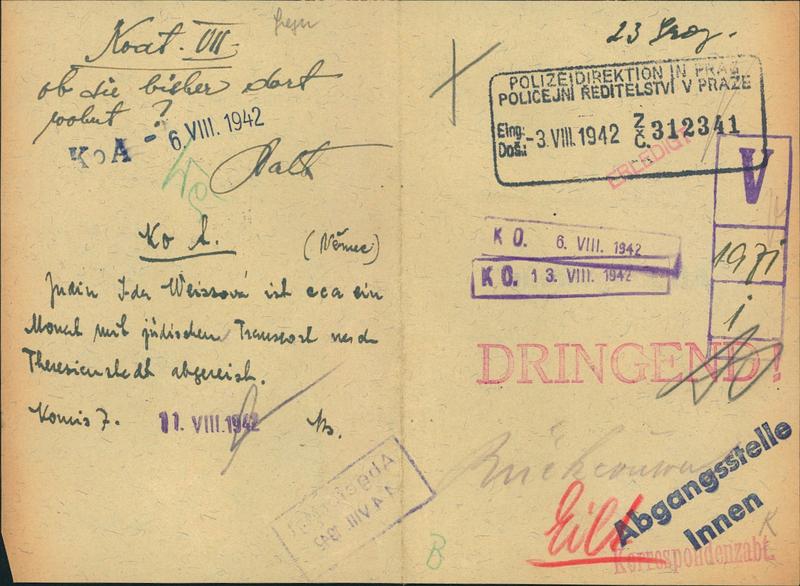 Koat. VII.
ob sie bisher dort
wohnt?
KoA - 6. VIII. 1942
Ko A.
(Němec)
Jüdin Ida Weissová ist cca ein
Monat mit jüdischen Transport nach
Theresienstadt abgereist.
Komis 7. 11. VIII. 1942
23
POLIZEIDIREKTION IN PRAG
POLICEJNÍ ŘEDITELSTVÍ V PRAZE
Eing.
Doš.: -3. VIII. 1942 Z Č. 312341
ERLEDIGT
V
1971
i
KO. 6. VIII. 1942
KO. 13. VIII. 1942
DRINGEND!
Eilt
Abgangsstelle
Innen
Korrespondenzabt.
B